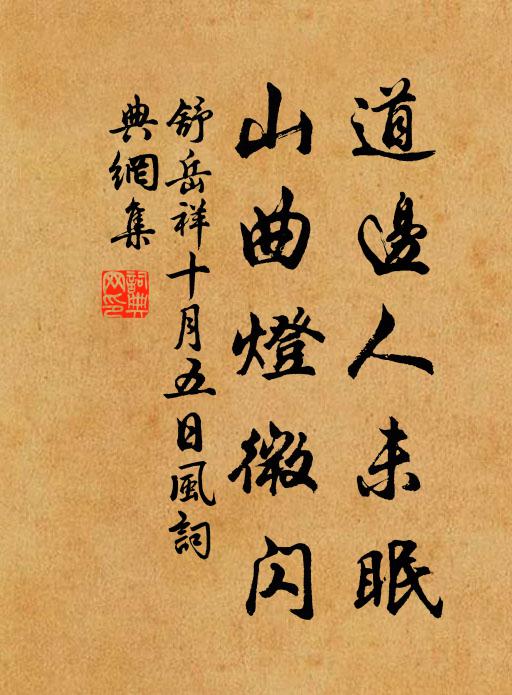 道邊人未眠
山曲燈微閃
舒岳祥十月五日風詞
典網集
詞典
网印